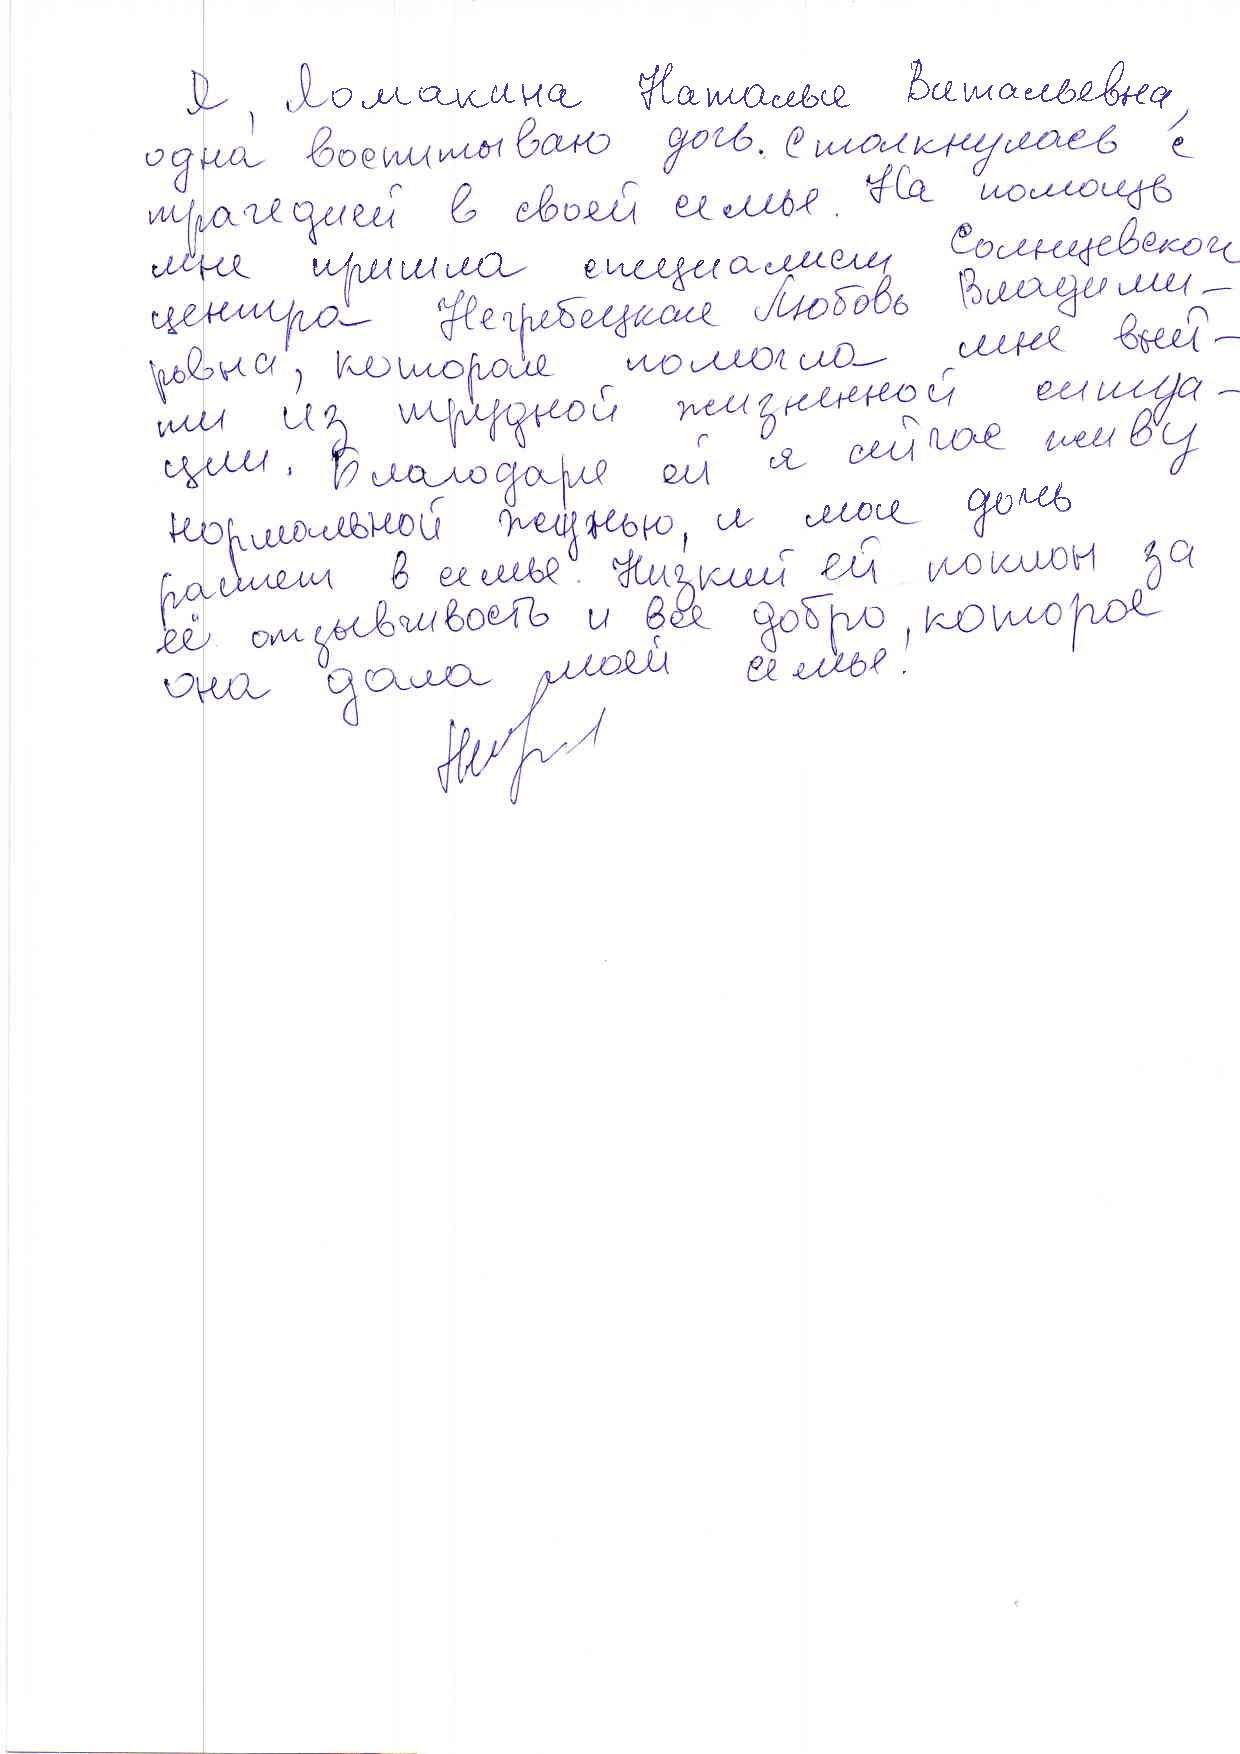 Я, Ломакина Наталья Витальевна,
одна воспитываю дочь. Столкнулась с
трагедией в своей семье. На помощь
мне пришла специалист Солнцевского
центра Негребецкая Любовь Владими-
ровна, которая помогла мне вый-
ти из трудной жизненной ситуа-
ции. Благодаря ей я сейчас живу
нормальной жизнью, и моя дочь
растет в семье. Низкий ей поклон за
её отзывчивость и все добро, которое
она дала моей семье!